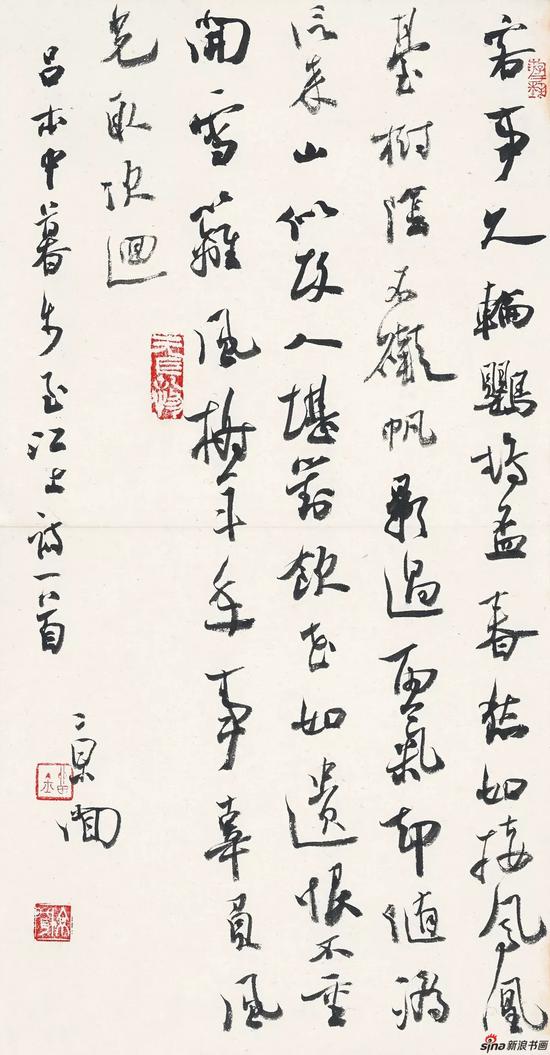 客事久輸鸚鵡盃春愁如接鳳凰
臺樹陰不礙帆影過雨氣却隨潮
信來山似故人堪對飲花如遺恨不重
開雪籬風榭年年事辜負風
光取次迴
吕本中暮步至江上詩一首
sina 新浪书画